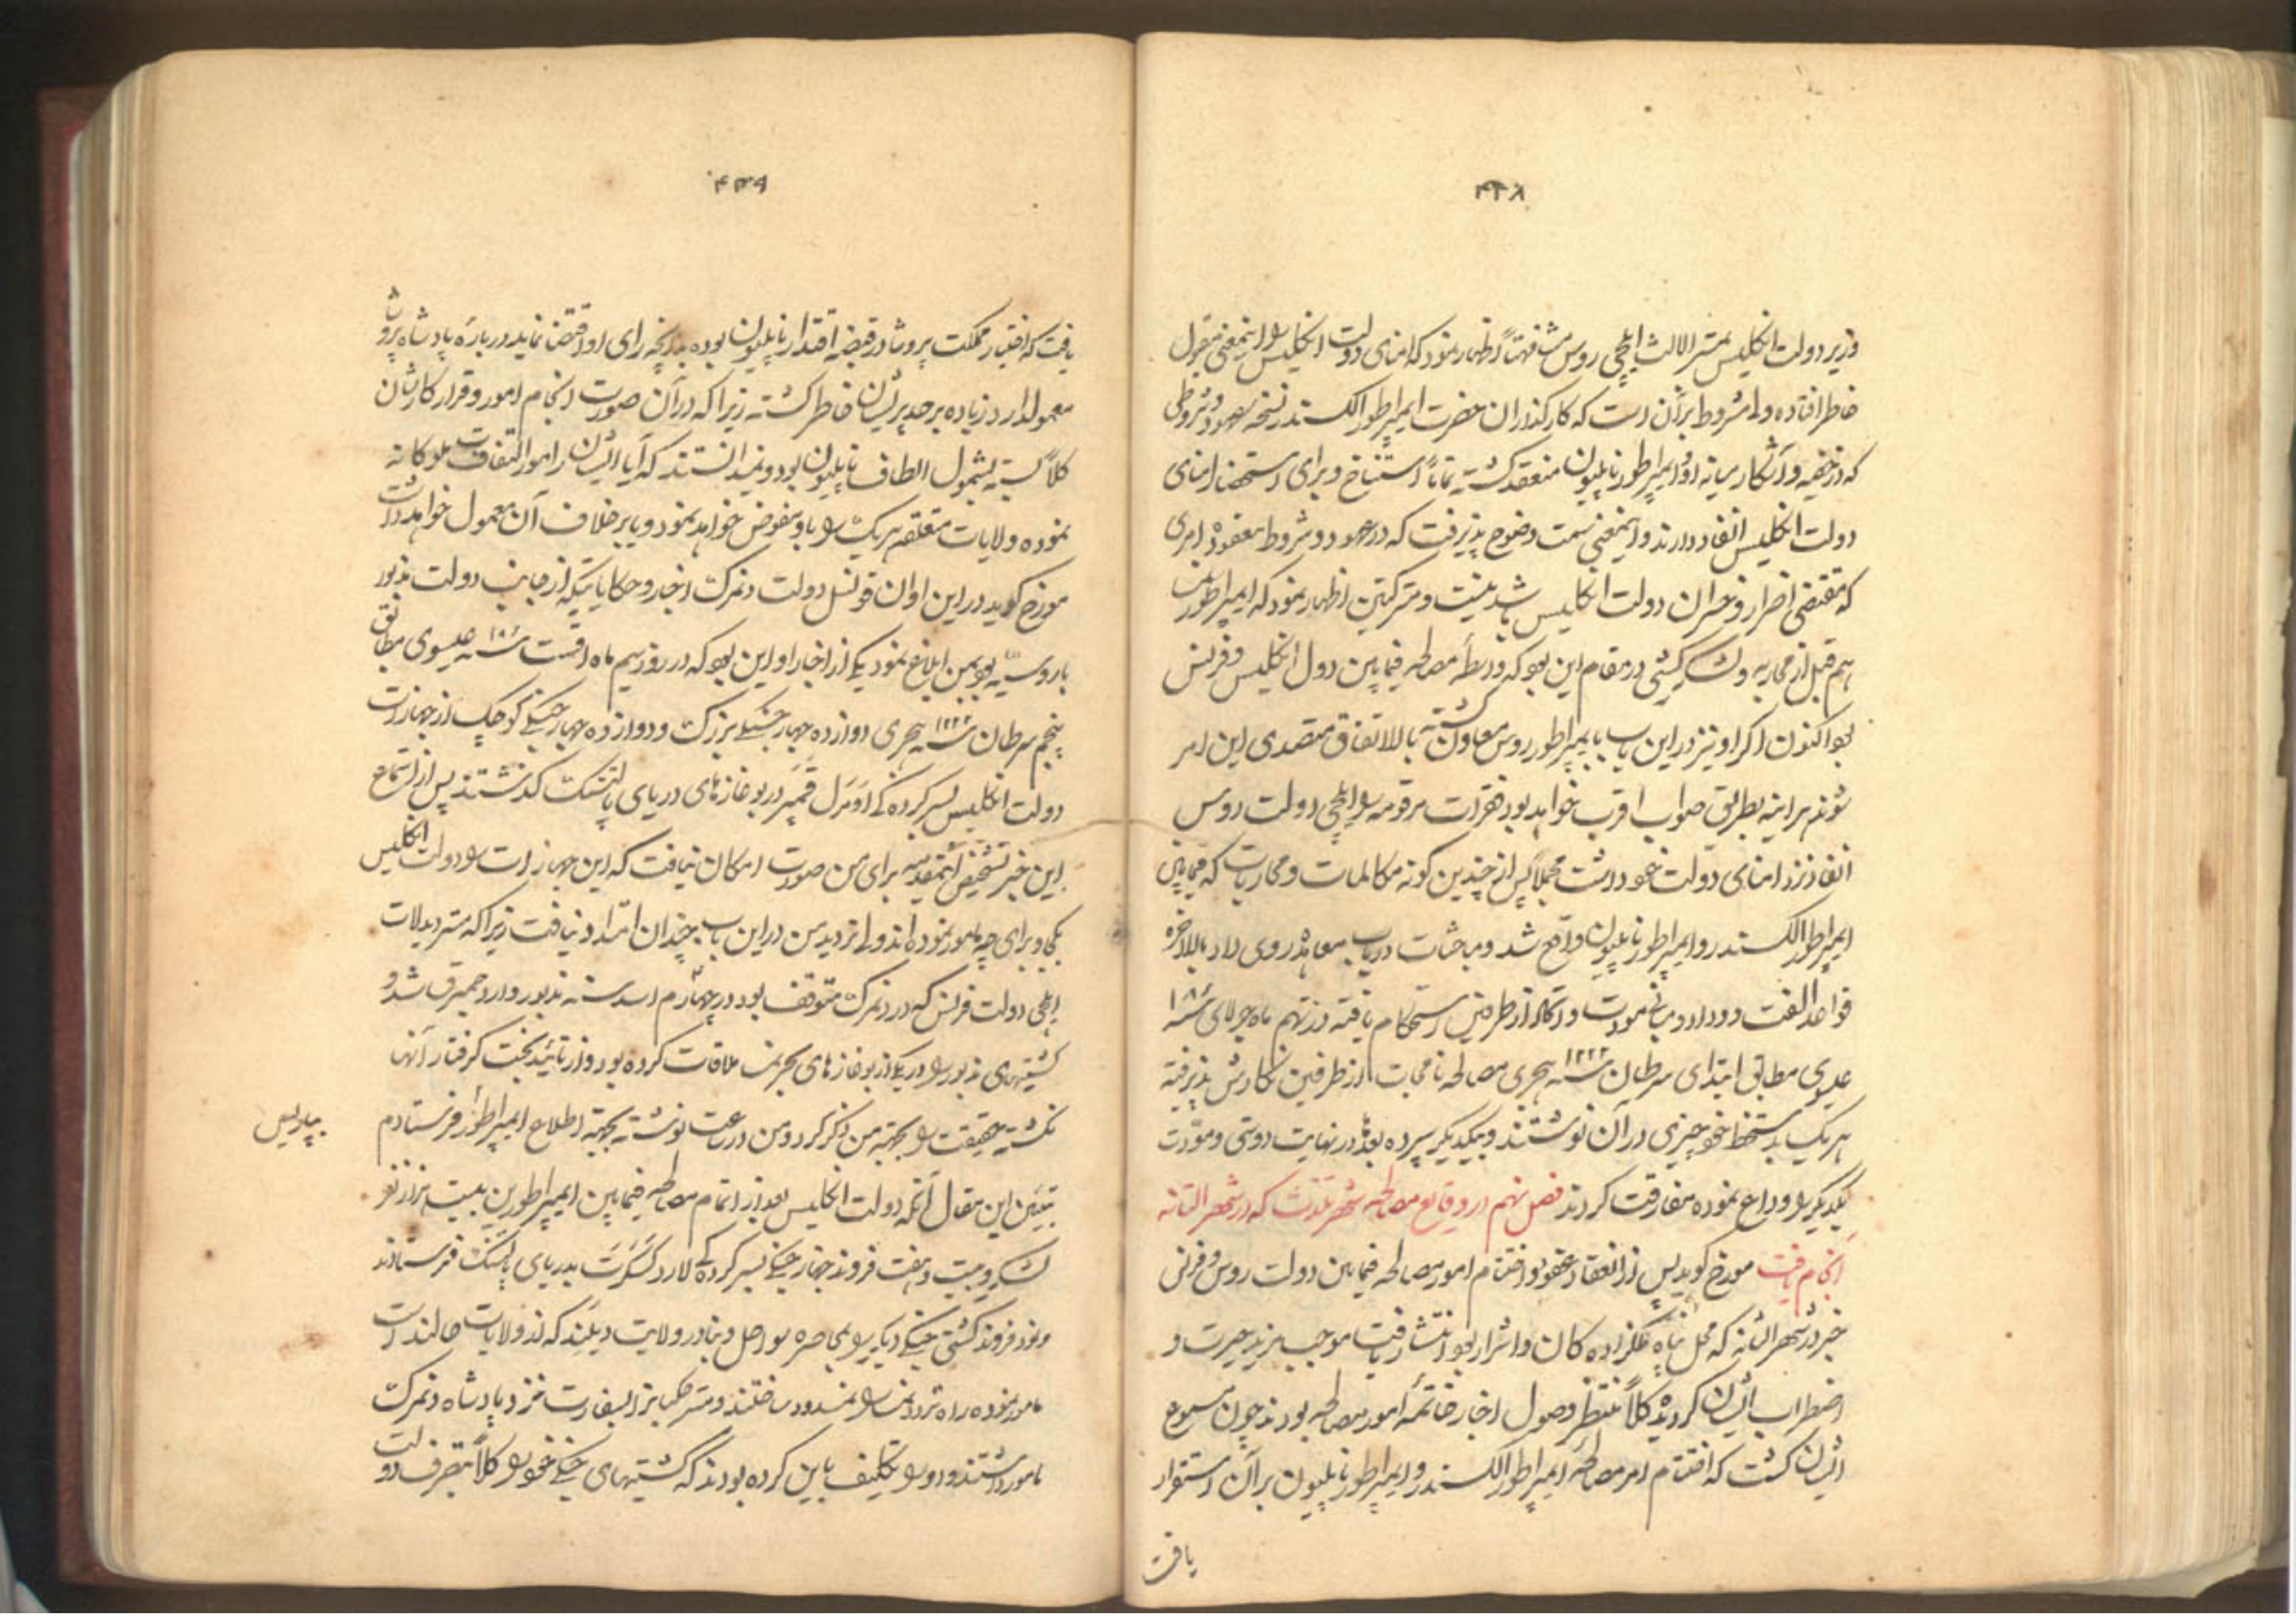 ۴۳۸
وزیر دولت انکلیس بمستر الالث ایلچی روس مشافهتاً اظهار نمود که امنای دولت انکلیس را اینمعنی مقبول
خاطر افتاده ولی مشروط بر آن است که کارکذاران حضرت ایمپراطور الکسندر نسخه عهود و شروطی
که در خفیه و آشکار میانه او و ایمپراطور ناپلیون منعقد کشته تماماً استنساخ و برای استحضار امنای
دولت انکلیس انفاد دارند و اینمعنی سمت وضوح پذیرفت که در عهود و شروط معقوده امری
که مقتضی اضرار و خسران دولت انکلیس باشد نیست و مستر کنین اظهار نمود که ایمپراطور
هم قبل از محاربه در مقام این بود که واسطه مصالحه فیمابین دول انکلیس و فرنس
بود اکنون اکر او نیز در این باب با ایمپراطور روس معاون کشته بالاتفاق متصدی این امر
شوند هر اینه بطریق صواب اقرب خواهد بود فقرات مرقومه را ایلچی دولت روس
انفاد نزد امنای دولت خود داشت مجملاً پس از چندین کونه مکالمات و محاربات که فیمابین
ایمپراطور الکسندر و ایمپراطور ناپلیون واقع شد و مباحثات در باب معاهده روی داد بالاخره
قواعد الفت و وداد و مبانی مودت و اتحاد از طرفین استحکام یافته در نهم ماه جولای سنه ۱۸۰۷
عیسوی مطابق ابتدای سرطان سنه ۱۲۲۲ هجری مصالحه نامجات از طرفین نکارش پذیرفته
هر یک بدستخط خود چیزی در آن نوشتند و بیکدیکر سپرده بعد در نهایت دوستی و مودت
یکدیکر را وداع نموده مفارقت کردند فصل نهم در وقایع مصالحه شهر تلدنت که در شهر التانه
انجام یافت مورخ کوید پس از انعقاد عقود و اختتام امور مصالحه فیمابین دولت روس و فرنس
خبر در شهر التانه که محل پناه ملکزاده کان و اشرار بود انتشار یافت موجب مزید حیرت و
اضطراب ایشان کردیده کلاً منتظر وصول اخبار خاتمه امور مصالحه بودند چون مسموع
ایشان کشت که اختتام امر مصالحه ایمپراطور الکسندر و ایمپراطور ناپلیون بر آن استقرار
یافت
۴۳۹
یافت که اختیار مملکت پروشا در قبضه اقتدار ناپلیون بوده هر آنچه رای او اقتضا نماید در باره پادشاه پروشا
معمول دارد زیاده بر حد پریشان خاطر کشته زیرا که در آن صورت انجام امور و قرار کارشان
کلاً بسته بشمول الطاف ناپلیون بود و نمیدانستند که آیا ایشان را مورد التفات ملوکانه
نموده ولایات متعلقه هر یک را باو مفوض خواهد نمود و یا بر خلاف آن معمول خواهد داشت
مورخ کوید در این اوان قونسل دولت دنمرک اخبار و حکایاتیکه از جانب دولت مذبور
با روسیه بود بمن ابلاغ نمود یکی از اخبار او این بود که در روز سیم ماه اقست سنه ۱۸۰۷ عیسوی مطابق
پنجم سرطان سنه ۱۲۲۲ هجری دوازده جهاز جنکی بزرک و دوازده جهاز جنکی کوچک از جهازات
دولت انکلیس بسرکرده کی ادمرل قمبر در بوغازهای دریای بالتسک کذشتند پس از استماع
این خبر تشخیص اینمقدمه برای من صورت امکان نیافت که این جهازات را دولت انکلیس
بکجا و برای چه مامور نموده اند ولی تردید من در این باب چندان امتداد نیافت زیرا که مستر دیدلات
ایلچی دولت فرنس که در دنمرک متوقف بود در چهارم اسد سنه مذبور وارد همبرق شد و
کشتیهای مذبور را در یکی از بوغازهای بحر ملاقات کرده بود و از تائید بخت کرفتار آنها
نکشته حقیقت را بجهته من ذکر کرد و من در ساعت نوشته بجهته اطلاع ایمپراطور فرستادم
بپاریس
تبیین این مقال آنکه دولت انکلیس بعد از اتمام مصالحه فیمابین ایمپراطورین بیست هزار نفر
لشکر و بیست و هفت فروند جهاز جنکی بسرکرده کی لارد بدریای بالتسک فرستادند
و نود فروند کشتی جنکی دیکر را بمحاصره سواحل و بنادر ولایت دیلند که از ولایات هالند است
مامور نموده راه تردد را مسدود ساختند و مستر جکسن را بسفارت نزد پادشاه دنمرک
مامور داشتند و او را تکلیف باین کرده بودند که کشتیهای جنکی خود را کلاً بتصرف دولت